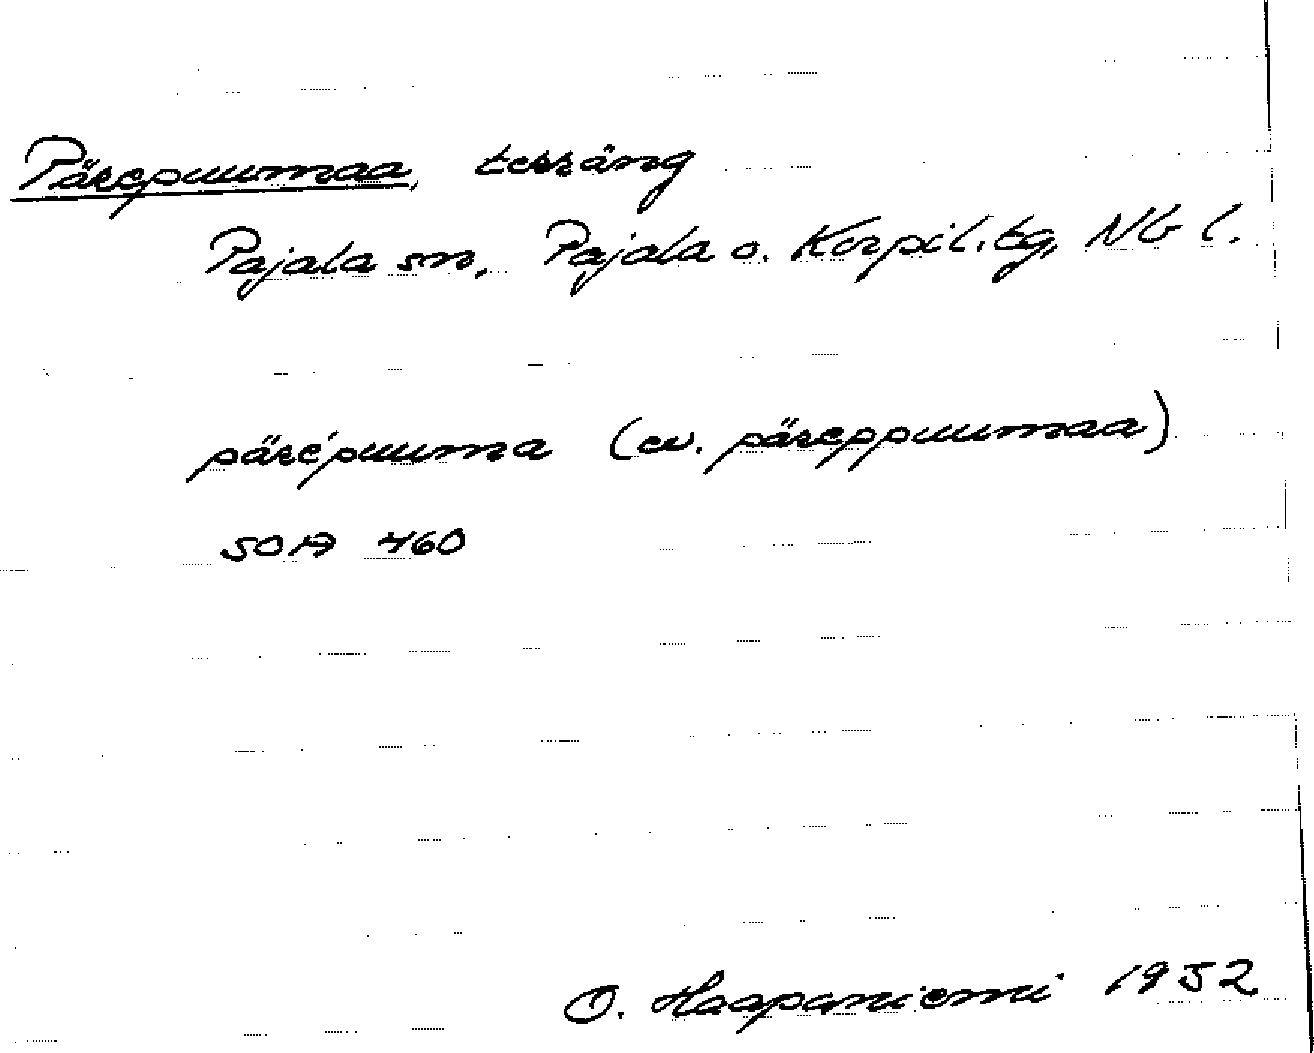 Pärepuumaa, terräng
Pajala sn, Pajala o. Korpil. tg, Nb l.
päre'puuma (ev. päreppuumaa)
SOA 460
O. Haapaniemi 1952